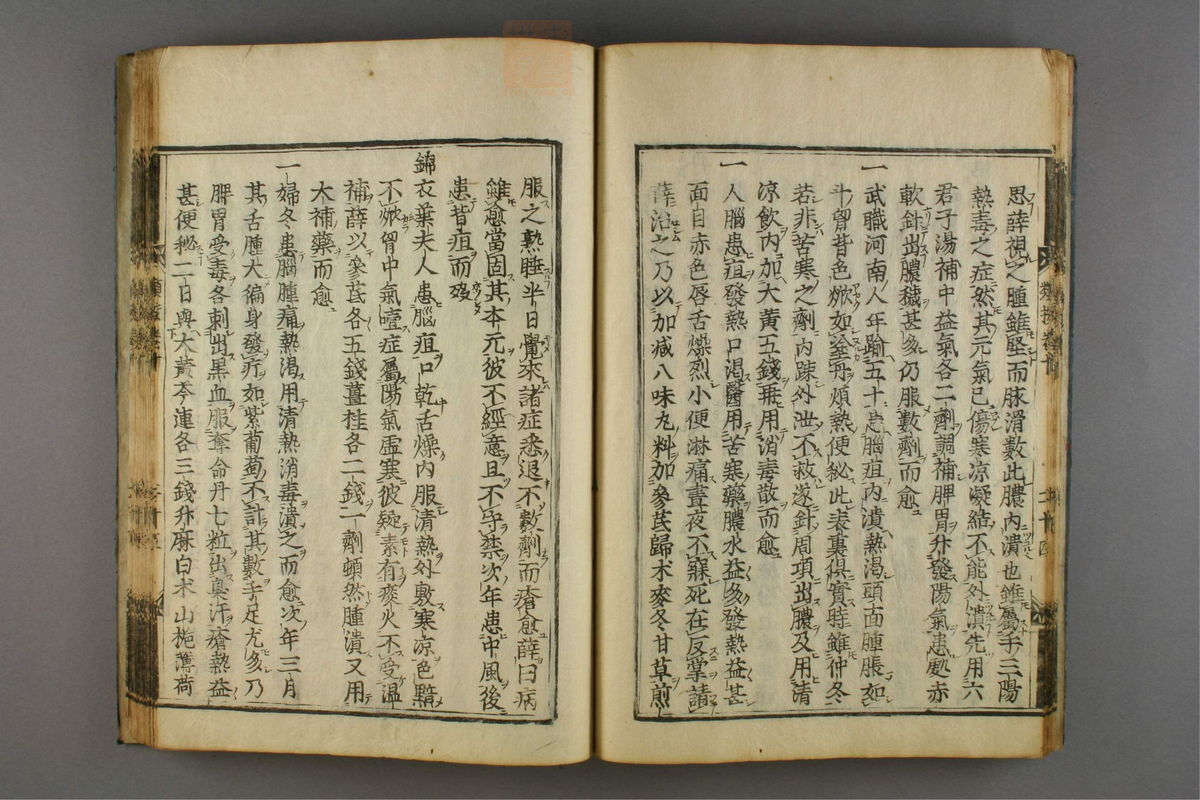 思薛視之腫雖堅而脉滑數此膿內潰也雖屬手三陽
熱毒之症然其元氣已傷寒凉凝結不能外潰先用六
君子湯補中益氣各二劑調補脾胃升發陽氣患處赤
軟針出膿穢甚多仍服數劑而愈
一武職河南人年踰五十患腦疽內潰熱渴頭面腫脹如
斗胷背色焮如塗丹煩熱便秘此表裏俱實時雖仲冬
若非苦寒之劑內疎外泄不救遂針周項出膿及用清
凉飲內加大黃五錢再用消毒散而愈
一人腦患疽發熱口渴醫用苦寒藥膿水益多發熱益甚
面目赤色唇舌燥烈小便淋痛晝夜不寐死在反掌請
薛治之乃以加减八味丸料加參芪歸朮麥冬甘草煎
服之熟睡半日覺來諸症悉退不數劑而瘡愈薛曰病
雖愈當固其本元彼不經意且不守禁次年患中風後
患背疽而殁
錦衣葉夫人患腦疽口乾舌燥內服清熱外敷寒凉色黯
不焮胷中氣噎症屬陽氣虛寒彼疑素有痰火不受温
補薛以參芪各五錢薑桂各二錢一劑頓然腫潰又用
大補藥而愈
一婦冬患腦腫痛熱渴用清熱消毒潰之而愈次年三月
其舌腫大徧身發疔如紫葡萄不計其數手足尤多乃
脾胃受毒各刺出黑血服奪命丹七粒出臭汗瘡熱益
甚便秘二日與大黃芩連各三錢升麻白朮山梔薄荷